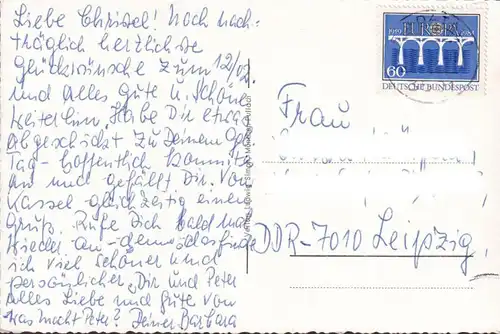 Liebe Christel! Noch nach-
träglich herzlichste
Glückwünsche zum 12/02.
und alles Gute u. Schöne
weiterhin. Habe Dir etwas
abgeschickt zu Deinem Geb.
Tag - hoffentlich kommt's
an und gefällt Dir. Von
Kassel gleichzeitig einen
Gruß. Rufe Dich bald mal
wieder an - denn das finde
ich viel schöner und
persönlicher. Dir und Peter
alles Liebe und Gute von
Was macht Peter? Deiner Barbara
EUROPA
1959 1984
60
DEUTSCHE BUNDESPOST
Frau
DDR-7010 Leipzig